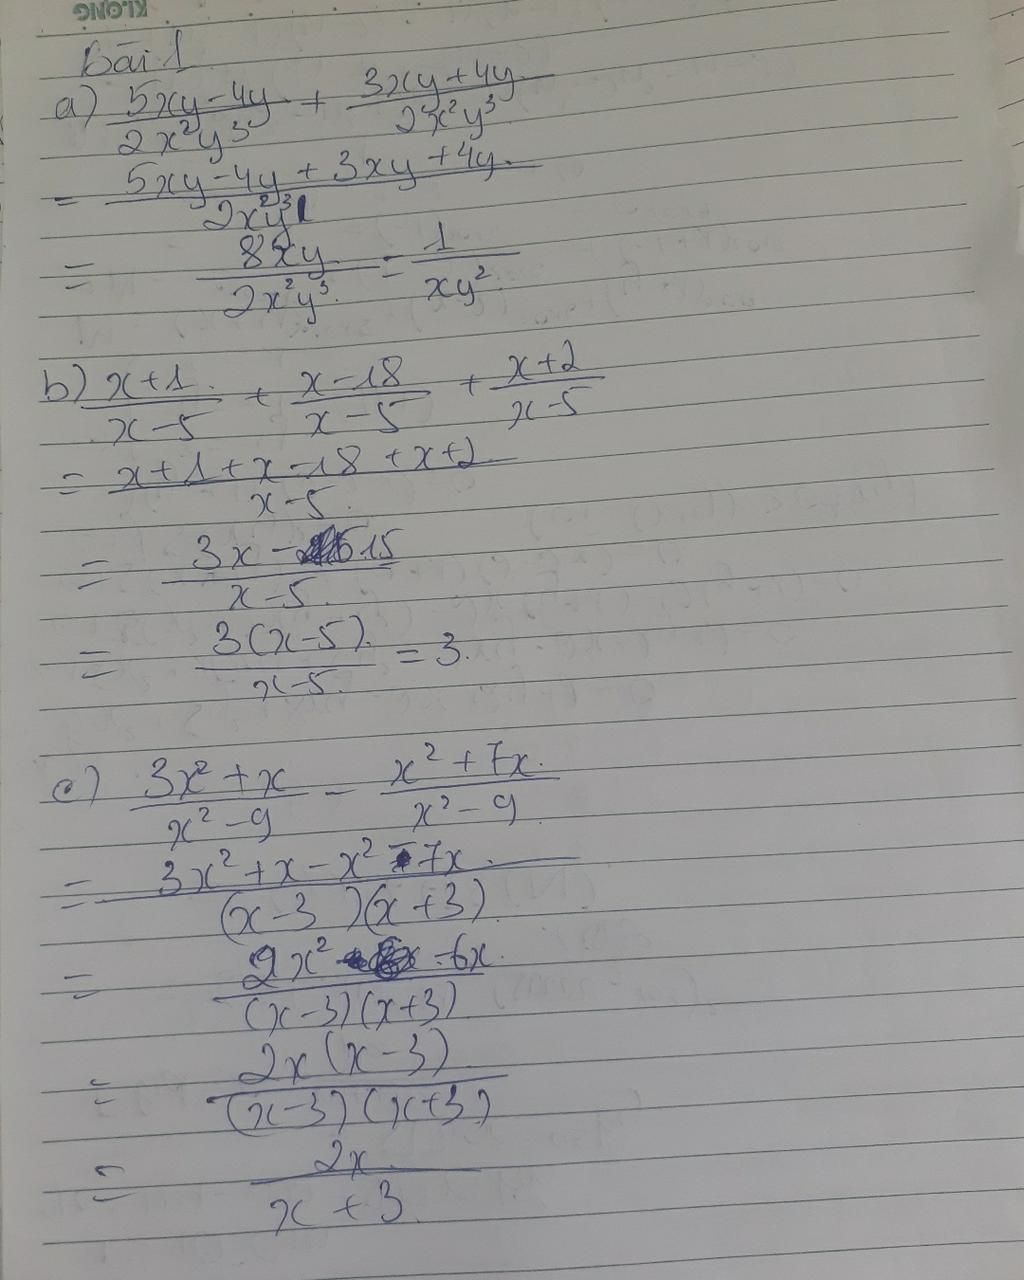 KLONG
Bài 1
a) (5xy - 4y)/(2x²y³) + (3xy + 4y)/(2x²y³)
= (5xy - 4y + 3xy + 4y)/(2x²y³)
= 8xy/(2x²y³) = 1/(xy²)
b) (x + 1)/(x - 5) + (x - 18)/(x - 5) + (x + 2)/(x - 5)
= (x + 1 + x - 18 + x + 2)/(x - 5)
= (3x - 15)/(x - 5)
= 3(x - 5)/(x - 5) = 3.
c) (3x² + x)/(x² - 9) - (x² + 7x)/(x² - 9)
= (3x² + x - x² - 7x)/((x - 3)(x + 3))
= (2x² - 6x)/((x - 3)(x + 3))
= 2x(x - 3)/((x - 3)(x + 3))
= 2x/(x + 3)